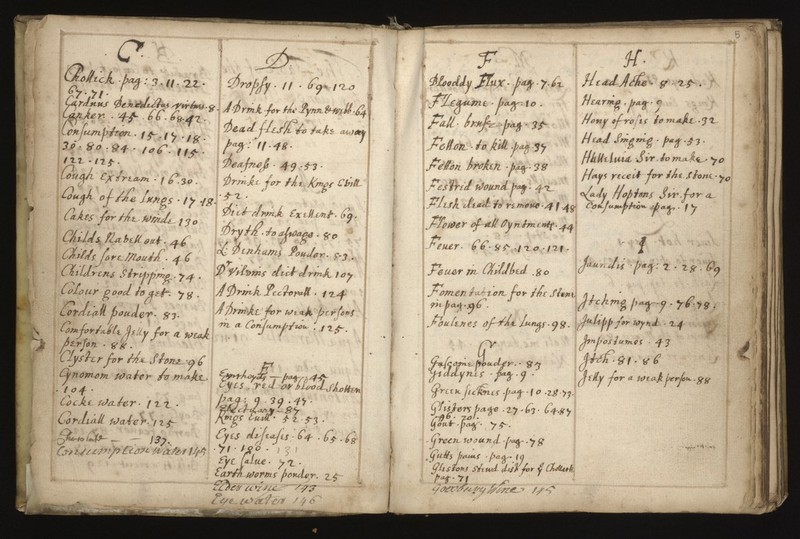 C.
Chollick pag: 3. 11. 22.
67. 71.
Carduus Benedictus virtus. 8.
Canker. 45. 66. 68. 42.
Consumption. 15. 17. 18.
30. 80. 84. 106. 115.
122. 125.
Cough Extream. 16. 30.
Cough of the lungs. 17. 18.
Cakes for the winde 130
Childs Navell out. 46
Childs sore Mouth. 46
Childrens Stripping. 74.
Colour good to get. 78.
Cordiall powder. 83.
Comfortable Jelly for a weak
person. 88.
Clyster for the Stone. 96
Cynomom water to make
104.
Cocke water. 122.
Cordiall water. 125
Chocolate 137.
Consumption water 145
D.
Dropsy. 11. 69. 120
A Drink for the
Dead flesh to take away
pag: 11. 48.
Deafness. 49. 53.
Drinke for the Kings Evill
52.
Diet drink Exellent. 69.
Dryth to asswage. 80
L: Denhams Powder. 83.
diet drink 107
A Drink Pectorall. 124
A Drinke for weak persons
in a Consumption. 125.
E
pag: 45
Eyes red or blood shotten
pag: 9. 39. 47.
Electuary 87
Kings Evill 52. 53.
Eyes diseases. 64. 65. 68
71. 131
Eye salve. 72.
Earth worms powder. 25
Elder wine 143
Eye water 146
5
F
Blooddy Flux. pag. 7. 62
Flegume. pag. 10.
Fall. bruse pag. 35
Fellon to kill pag 37
Fellon broken pag. 38
Festrid wound pag. 42
Flesh dead to remove. 41. 48
Flower of all Oyntments. 44
Fever. 66. 85. 120. 121.
Fever in Childbed. 80
Fomentation for the Stone
in pag. 96.
Foulenes of the Lungs. 98.
G
Gascoine powder. 83
Giddynes. pag. 9.
Green sicknes pag. 10. 28. 73.
Glisters page. 27. 63. 64. 87
96. 70.
Gout pag. 75.
Green wound pag. 78
Gutts paines. pag. 19
Glistons for ye Chollick
pag. 71
Gooseberry Wine 145
H.
Head Ache. 8. 25.
Hearing. pag. 9
Hony of roses to make. 32
Head Singing. pag. 53.
Halleluia Sir. to make. 70
Hays receit for the Stone. 70
Lady Hoptons Sir. for a
Consumption. pag. 17
I
Jaundis pag: 2. 28. 69
Itching pag. 9. 76. 78.
Julipp for wynd. 24
Impostumes. 43
Itch. 81. 86
Jelly for a weak person. 88